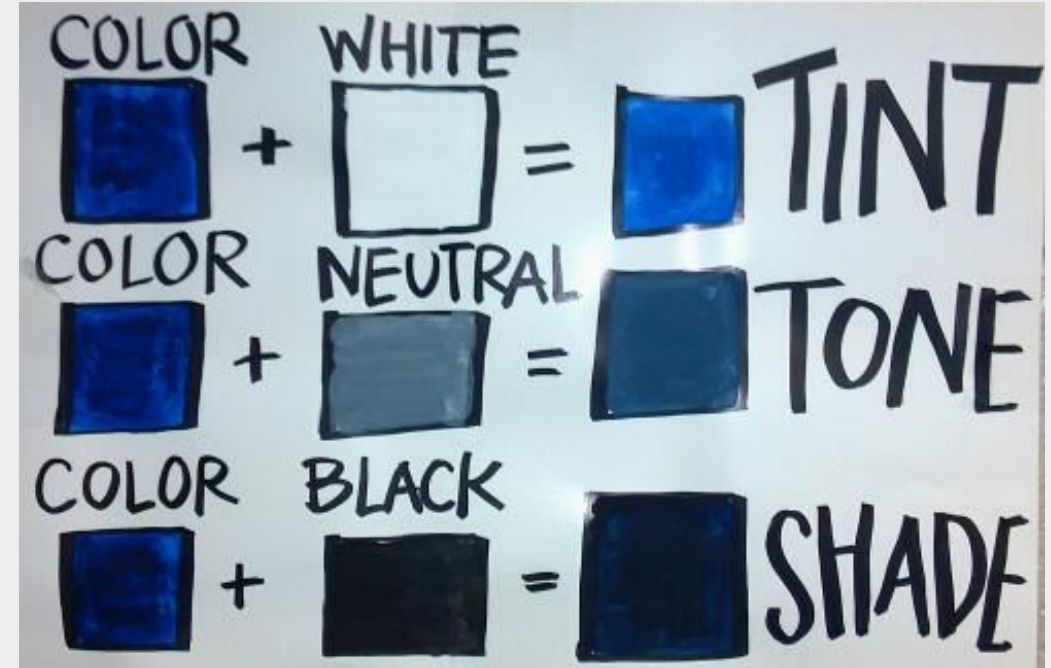 COLOR + WHITE = TINT
COLOR + NEUTRAL = TONE
COLOR + BLACK = SHADE